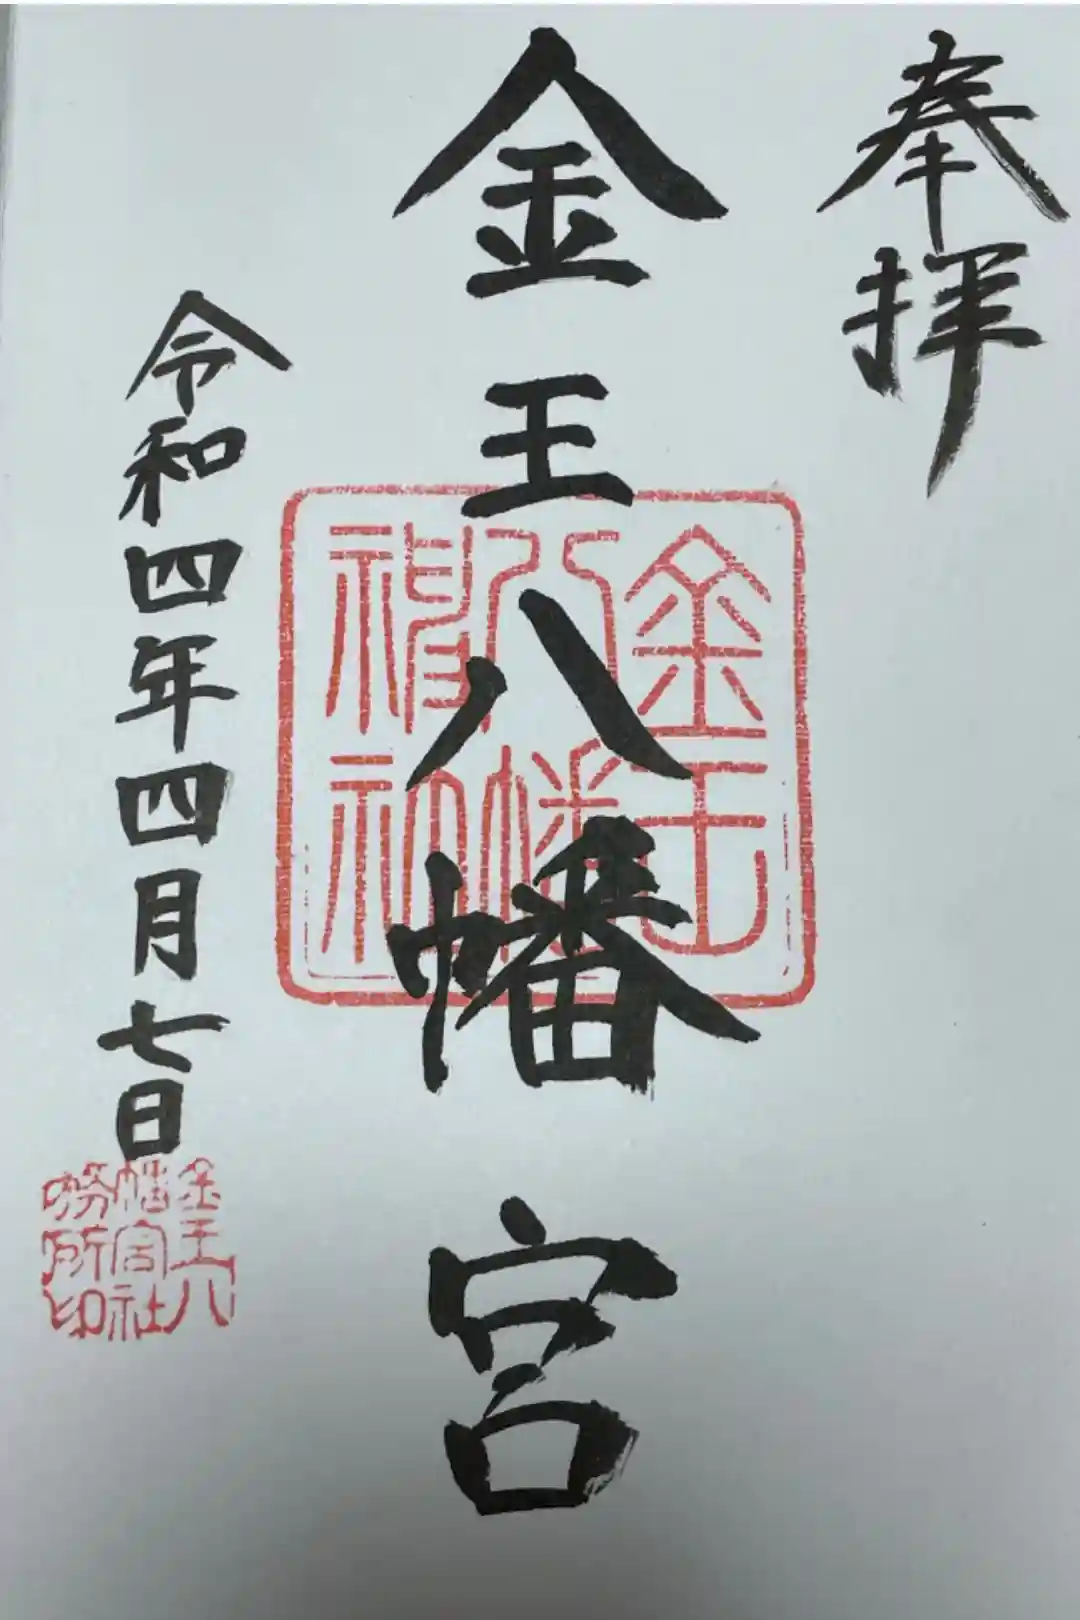 奉拝
金王八幡宮
金王
八幡
神社
令和四年四月七日
金王八
幡宮社
務所印